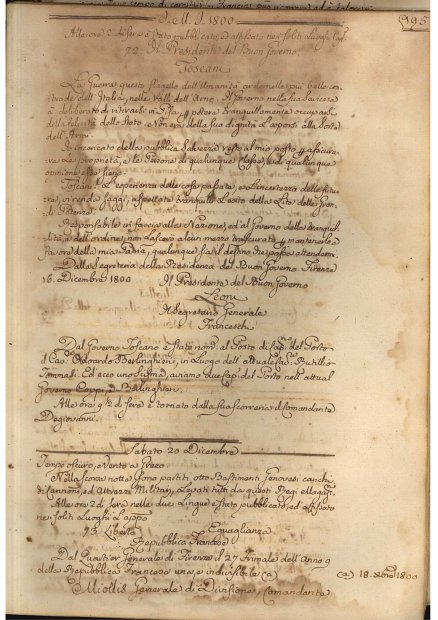 J. M. J. 1800
195
Alle ore 2 di sera è stato pubblicato, ed affisso nei soliti luoghi
22. Il Presidente del Buon Governo.
Toscani
La Guerra questo flagello dell'Umanità
dell'Italia, nelle Valli dell'Arno. Il Governo nella sua saviezza
à deliberato di ritirarsi a Pisa, potere tranquillamente occuparsi
della felicità dello Stato e non era della sua dignità l'esporsi alla sorte
dell'Armi
Incaricato della pubblica salvezza resto al mio posto
le proprietà, e le Persone di qualunque Classe, e di qualunque
opinione esse sieno.
Toscani! L'esperienza delle cose passate, e l'incertezza delle future
vi renda saggi, aspettate tranquilli l'esito della Lite delle Gran-
di Potenze.
Responsabile in faccia alla Nazione, ed al Governo della tranquil-
lità, e dell'ordine, non lascerò alcun mezzo trascurato mantenerlo a
favore della mia Patria, qualunque sia il destino che possa attendermi.
Dalla Segreteria della Presidenza del Buon Governo Firenze
16. Dicembre 1800
Il Presidente del Buon Governo
Leoni
Il Segretario Generale
Franceschi
Dal Governo Toscano è stato nominato al Posto di del Porto
il Odoardo Berlinghieri, in luogo dell'attuale Rutilio
Tommasi. Ed ecco uno scisma, aviamo due del Porto nell'attual
Governo Coppi, e Berlinghieri.
Alle ore 9½ di sera è tornato dalla sua scorreria il Comandante
Degiovanni.
Sabato 20 Dicembre
Tempo oscuro, e Vento a Greco
Nella scorsa notte sono partiti otto Bastimenti Genovesi carichi
di Cannoni, ed Attrezzi Militari, Levati tutti da questi Regi Magazzini
Alle ore 2 di sera nelle due Lingue è stato pubblicato, ed affisso
nei soliti Luoghi
Libertà Eguaglianza
Repubblica Francese
Dal Quartier Generale di Firenze il 27 Frimale dell'Anno 9
della Repubblica Francese una, e indivisibile (a)
(a) 18. Xbre 1800
Miollis Generale di Divisione, Comandante